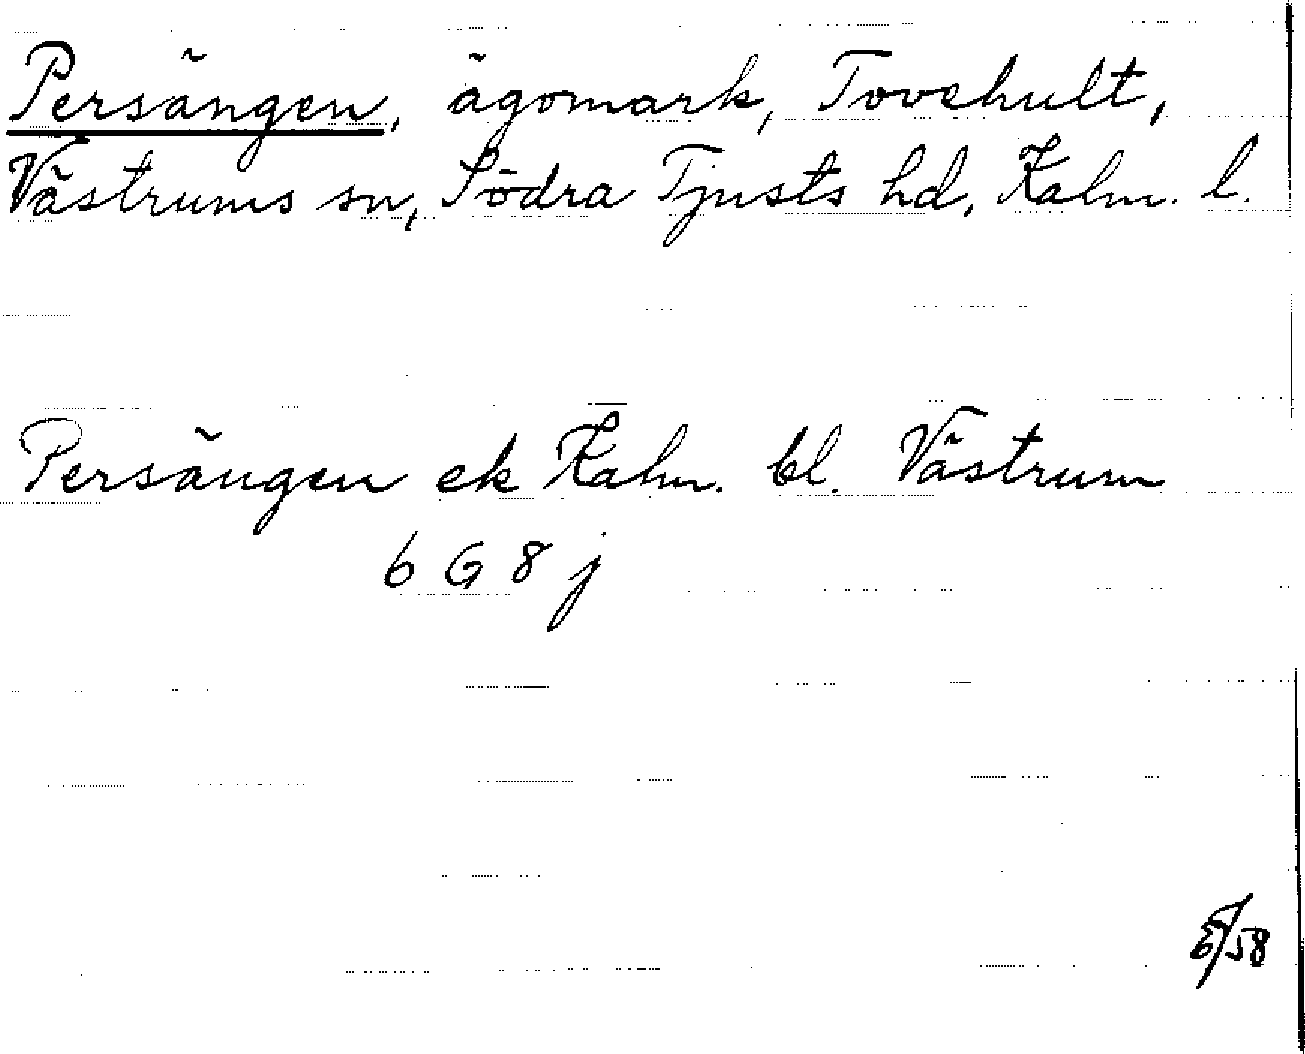 Persängen, ägomark, Tovehult,
Västrums sn, Södra Tjusts hd, Kalm. l.
Persängen ek Kalm. bl. Västrum
6 G 8 j
/58